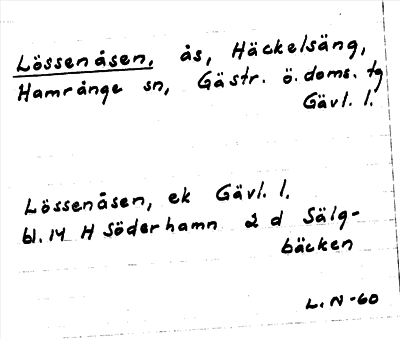 Lössenåsen, ås, Häckelsäng,
Hamrånge sn, Gästr. ö. doms. tg
Gävl. l.
Lössenåsen, ek Gävl. l.
bl. 14 H Söderhamn 2 d Sälg-
bäcken
L. N-60